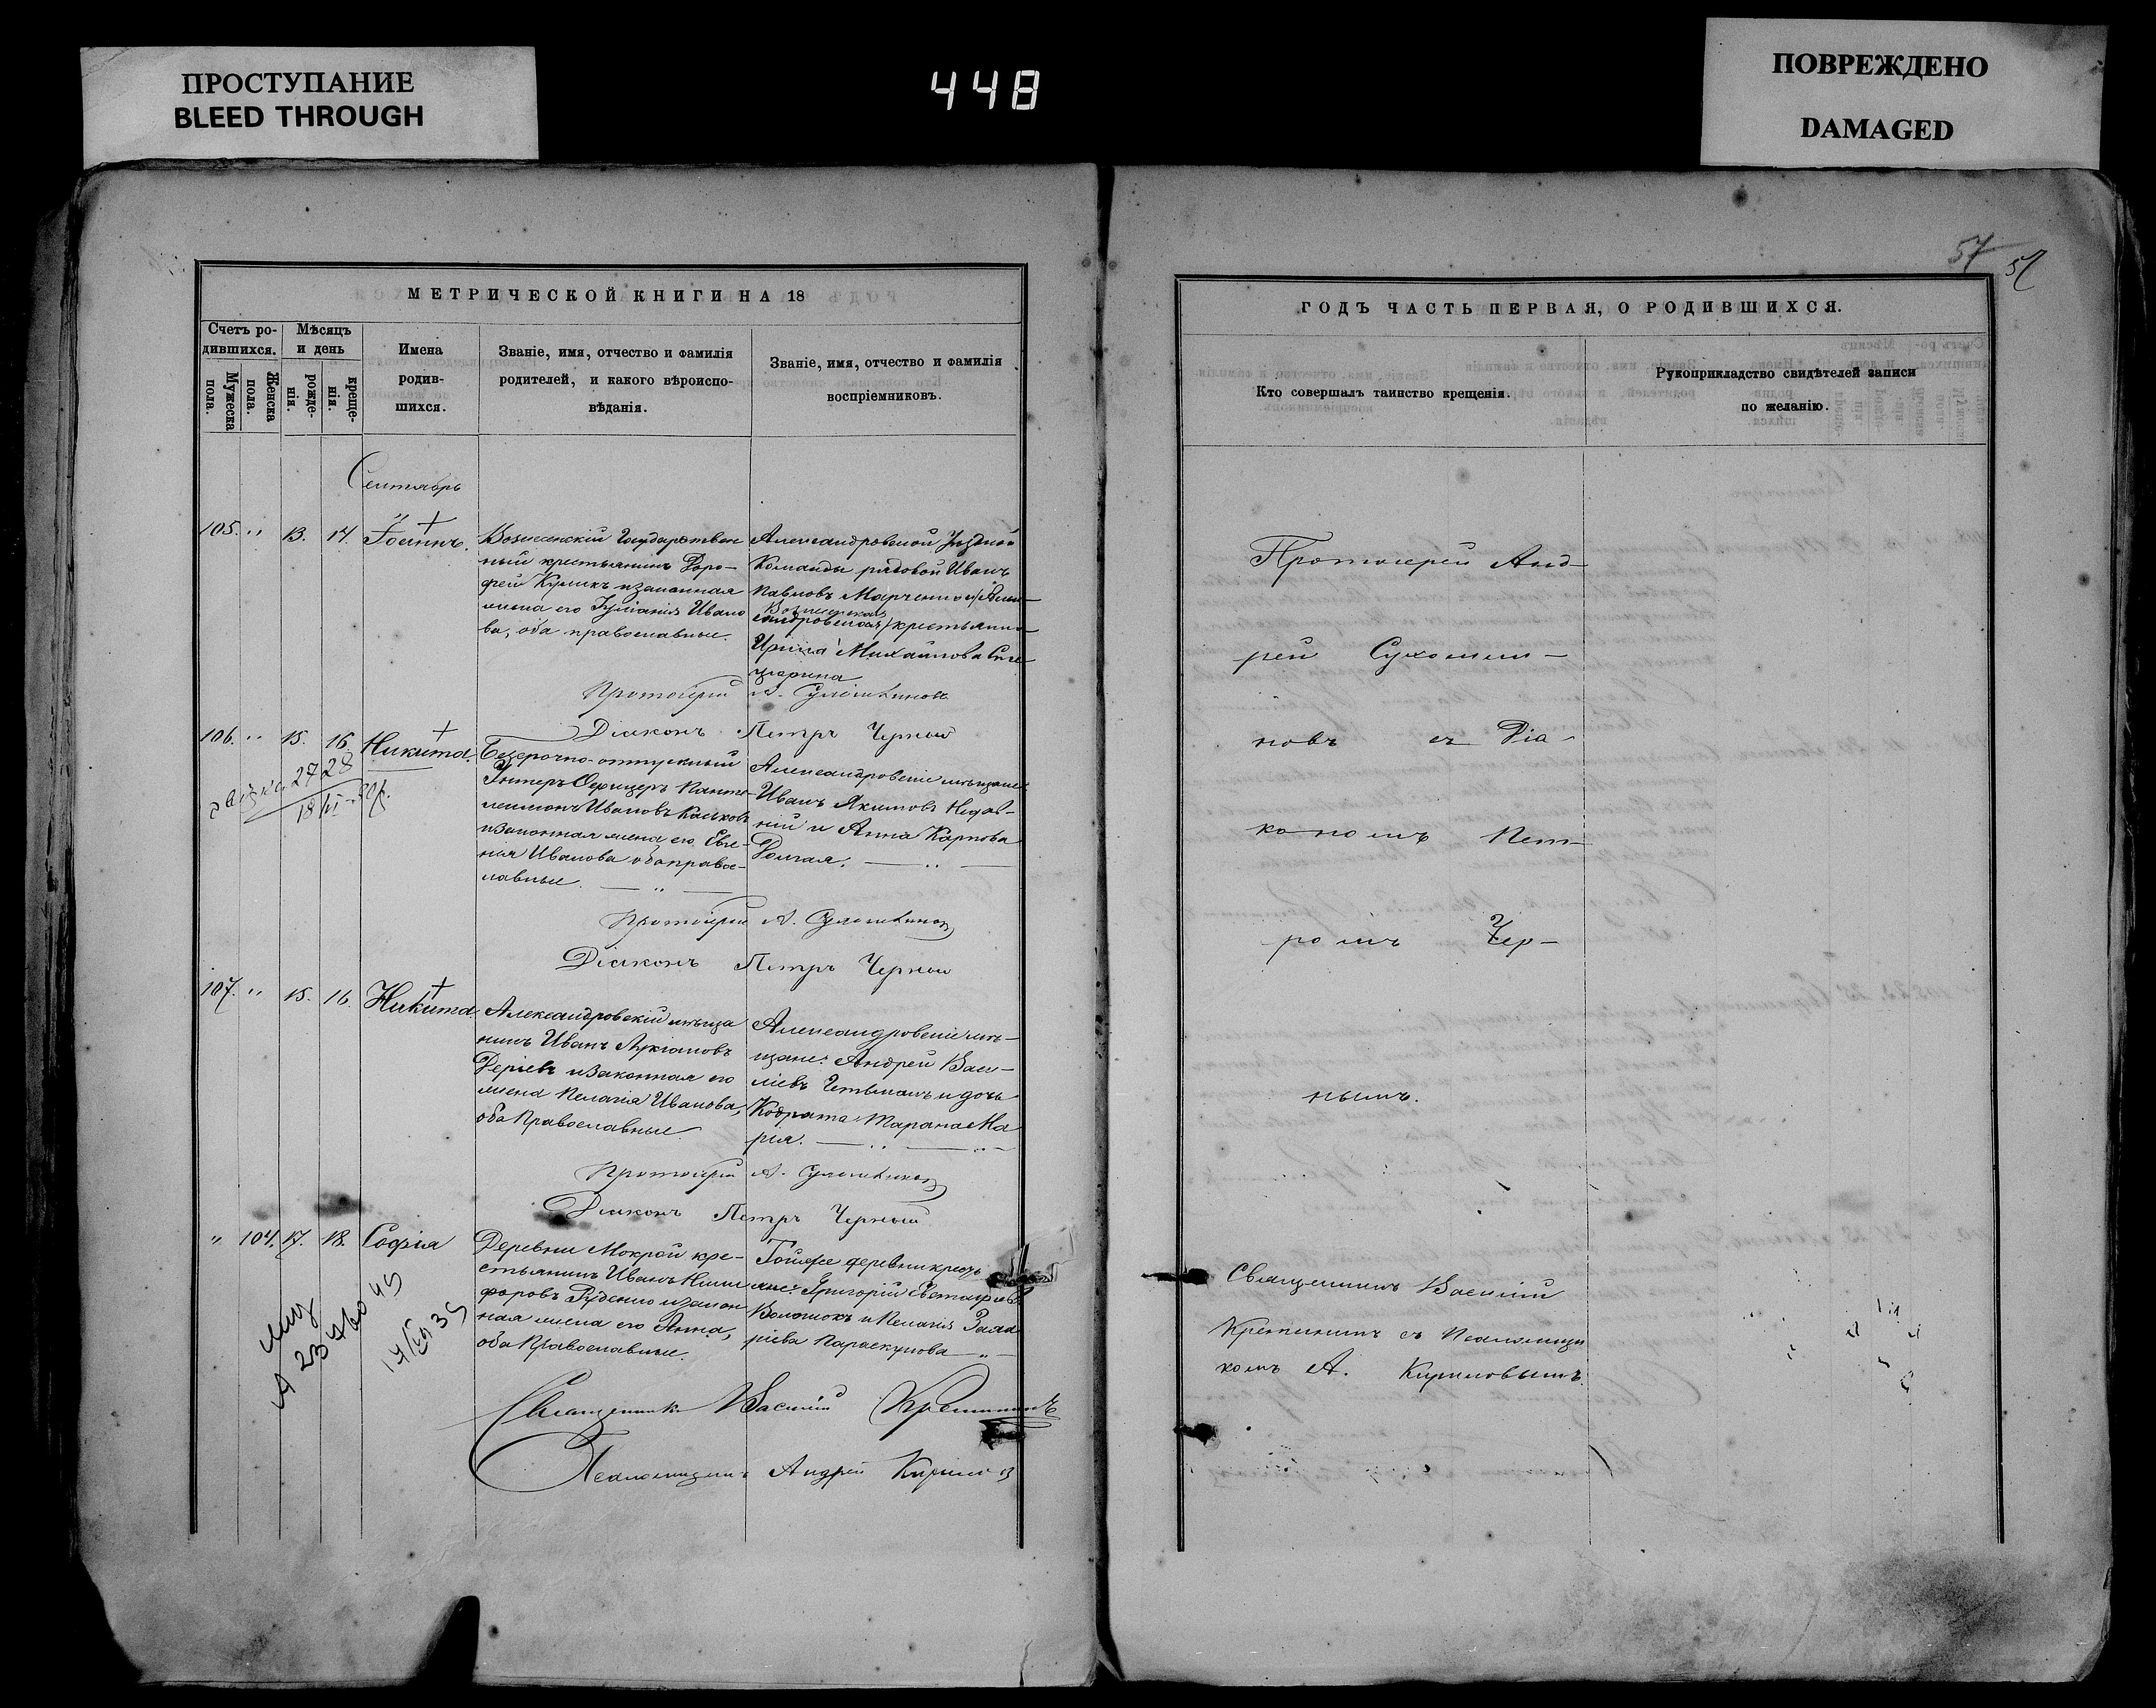 ПРОСТУПАНИЕ
BLEED THROUGH
448
ПОВРЕЖДЕНО
DAMAGED
57
МЕТРИЧЕСКОЙ КНИГИ НА 18
Счетъ ро-
дившихся.
Мужеска пола.
Женска пола.
Мѣсяцъ
и день
рожде-
нія.
креще-
нія.
Имена
родив-
шихся.
Званіе, имя, отчество и фамилія
родителей, и какого вѣроиспо-
вѣданія.
Званіе, имя, отчество и фамилія
воспріемниковъ.
Сентябрь
105. " 13. 14. Іоаннъ.
Вознесенскій Государствен
ный крестьянинъ Доро-
фей Куликъ и законная
жена его Іуліанія Ивано
ва, оба православные.
Александровской Уѣздной
Команды рядовой Иванъ
Павловъ Марченко и
Вознесенская
крестьянка
Ирина Михайлова
Протоіерей А. Сухомлиновъ
Діаконъ Петръ Черный
106. " 15. 16. Никита.
Безсрочно-отпускный
Унтеръ-Офицеръ Панте-
леимонъ Ивановъ
и законная жена его Евге-
нія Иванова оба правос-
лавные.
Александровскіе мѣщане
Иванъ Якимовъ
и Анна Карпова
Долгая.
27 28
Протоіерей А. Сухомлиновъ
Діаконъ Петръ Черный
107. " 15. 16. Никита
Александровскій мѣща
нинъ Иванъ Лукіановъ
Деріевъ и законная его
жена Пелагія Иванова,
оба Православные.
Александровскіе мѣ-
щане: Андрей Васи-
ліевъ Гетьманъ и дочь
Кодрата Тарана Ма
рія.
Протоіерей А. Сухомлиновъ
Діаконъ Петръ Черный
" 104. 17. 18. Софія
Деревни Мокрой кре-
стьянинъ Иванъ Ники
форовъ Руденко и закон
ная жена его Анна,
оба Православные.
Тойже деревни крестья
не: Григорій Евстафіевъ
Волошокъ и Пелагія
Параскунова
Священникъ Василій Крещининъ
Псаломщикъ Андрей Кириловъ
ГОДЪ ЧАСТЬ ПЕРВАЯ, О РОДИВШИХСЯ.
Кто совершалъ таинство крещенія.
Рукоприкладство свидѣтелей записи
по желанію.
Протоіерей Анд-
рей Сухомли-
новъ съ Діа-
кономъ Пет-
ромъ Чер-
нымъ.
Священникъ Василій
Крещининъ съ Псаломщи
комъ А. Кириловымъ.